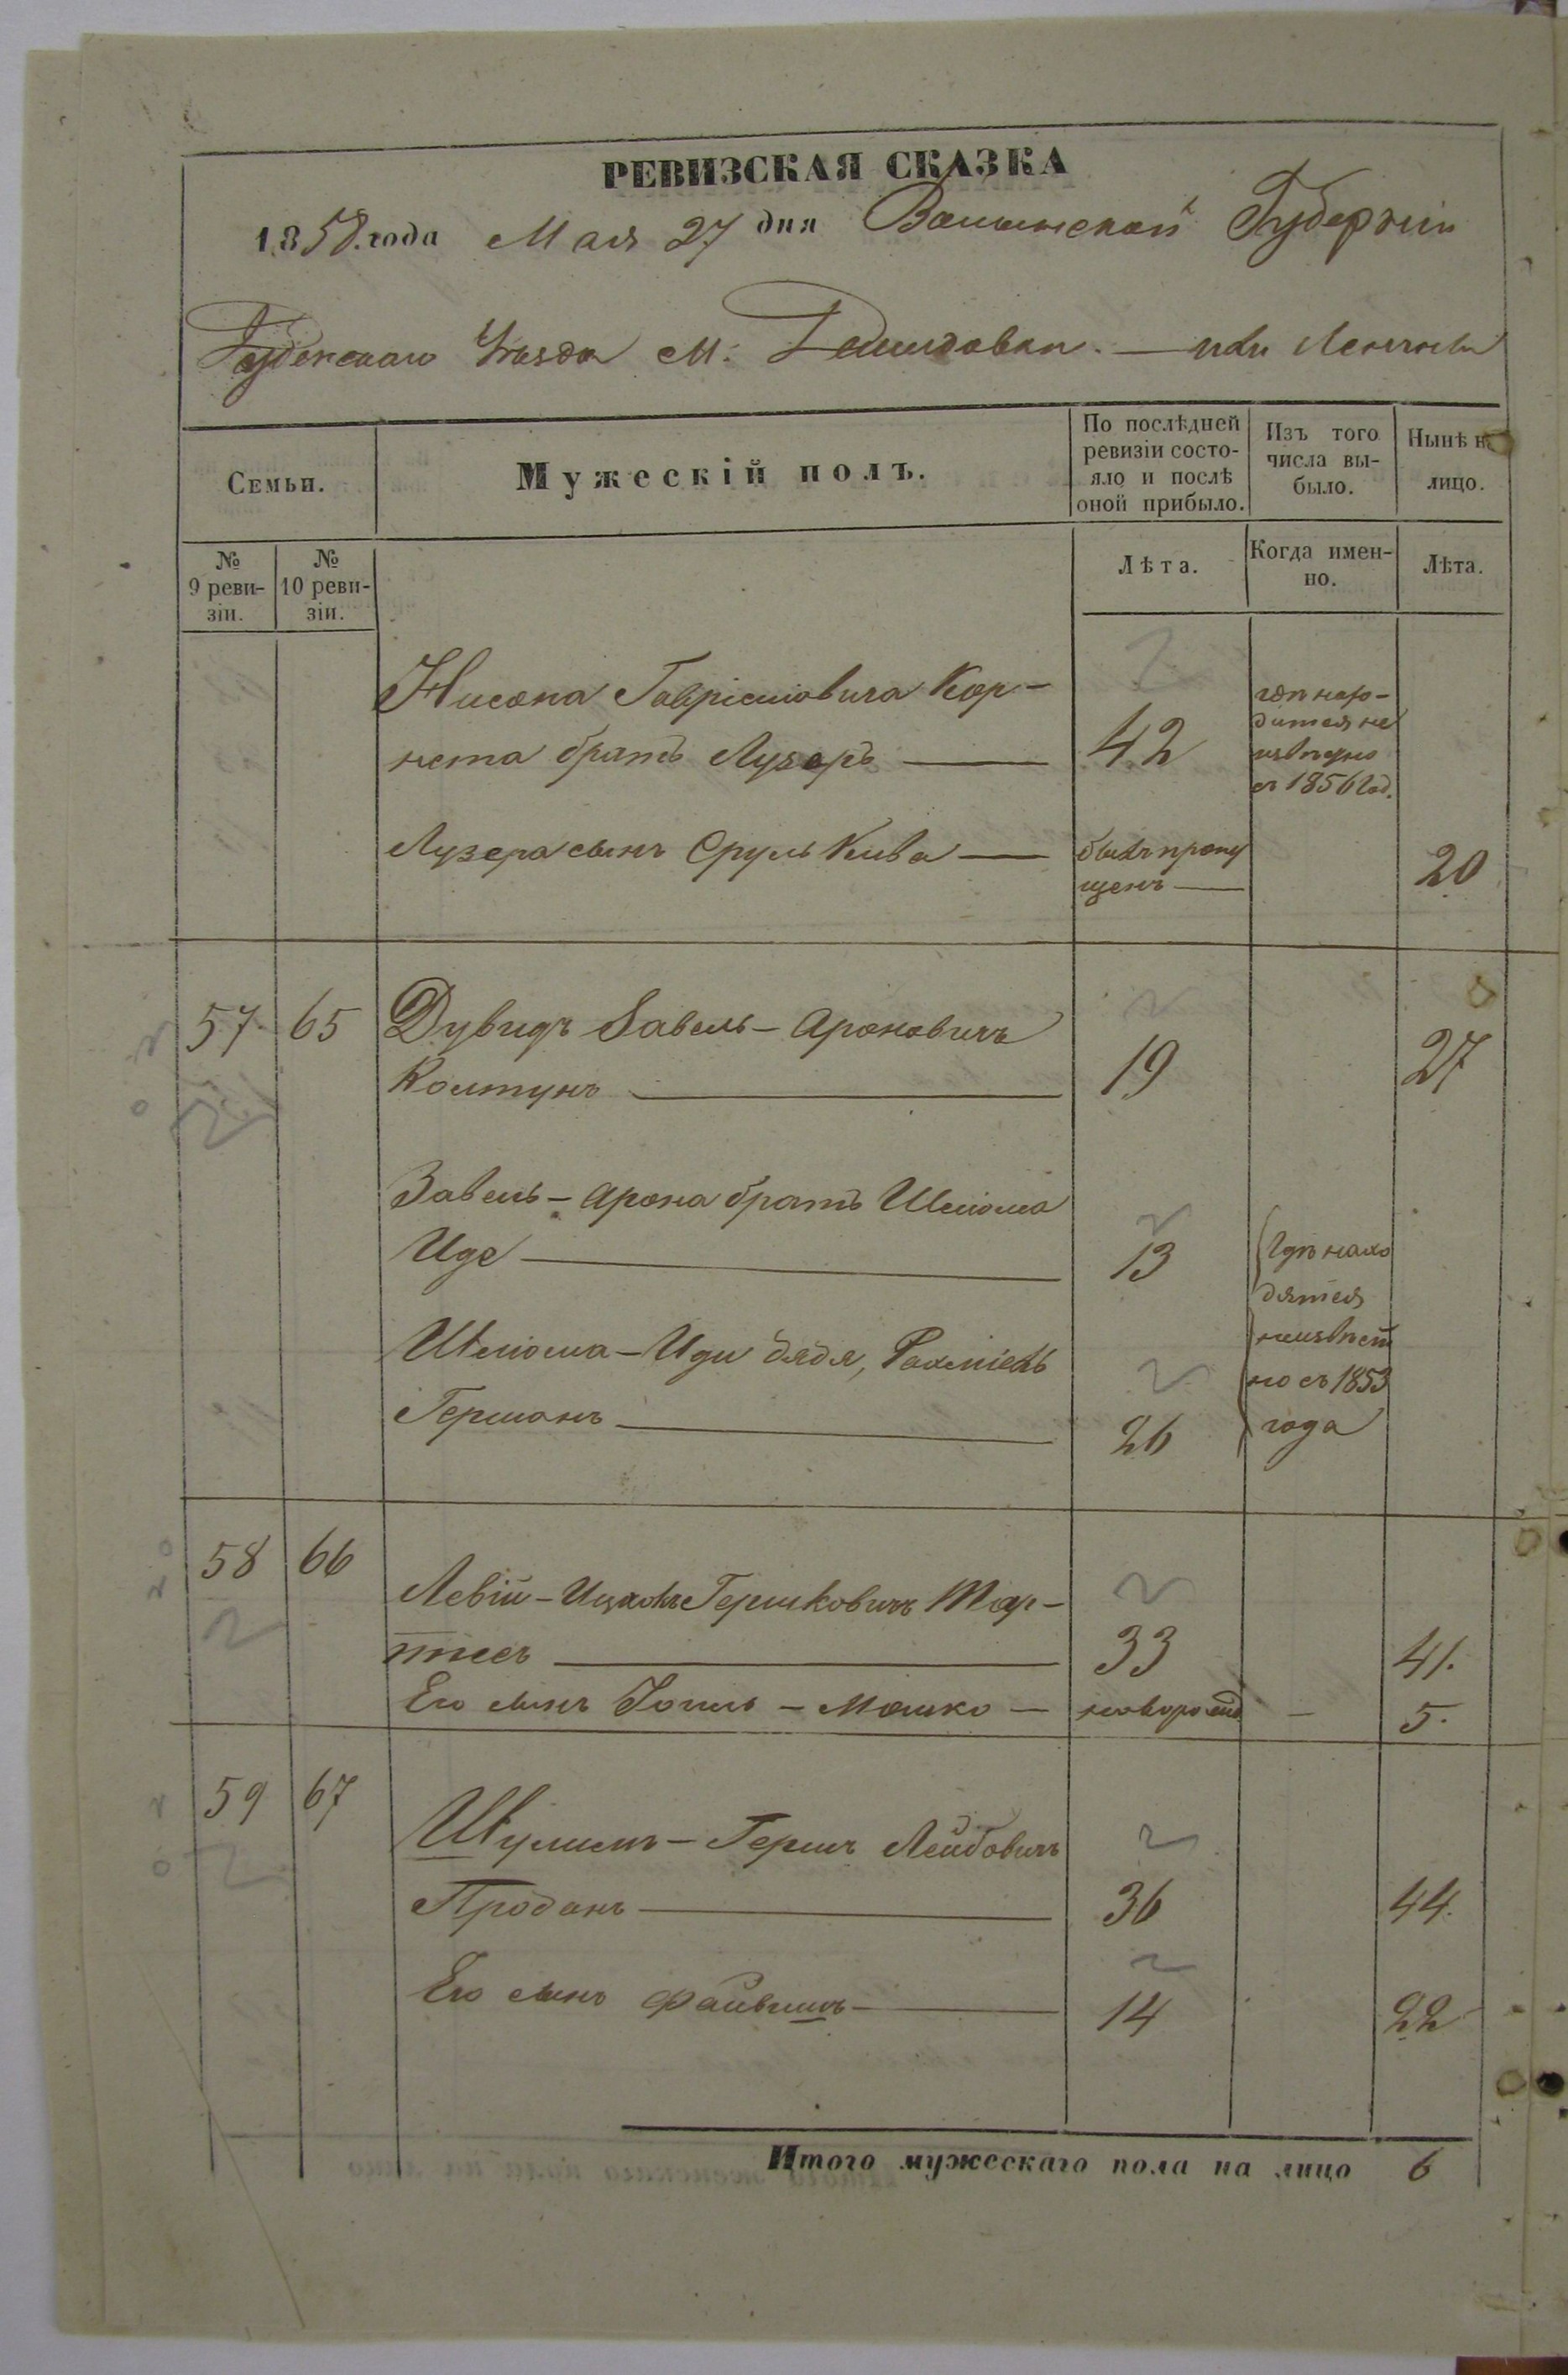 РЕВИЗСКАЯ СКАЗКА
1858. года Мая 27 дня Волынской Губернии
Дубенскаго Уѣзда М. Демидовки. —
Семьи.
Мужескій полъ.
По послѣдней
ревизіи состо-
яло и послѣ
оной прибыло.
Изъ того
числа вы-
было.
Нынѣ н
лицо.
№
9 реви-
зіи.
№
10 реви-
зіи.
Лѣта.
Когда имен-
но.
Лѣта.
Нисона Гавріеловича Кор-
нета братъ Лузеръ — 42
где нахо-
дится не
извѣстно
съ 1856 год.
Лузера сынъ Сруль Кива —
былъ пропу
щенъ — 20
57. 65 Дувидъ Завель-Ароновичъ
Колтунъ — 19 27
Завель-Арона братъ Шліома
Иде — 13
Шліома-Иди дядя, Рахміель
Германъ — 26
Гдѣ нахо
дятся
неизвѣст
но съ 1853
года
58 66 Левій-Ицковъ Гершковичъ Тар-
тнесъ — 33 41.
Его сынъ Іоиль-Мошко — новорожд — 5.
59 67 Шулимъ-Гершъ Лейбовичъ
Проданъ — 36 44.
Его сынъ Файвишъ — 14 22
Итого мужескаго пола на лицо 6